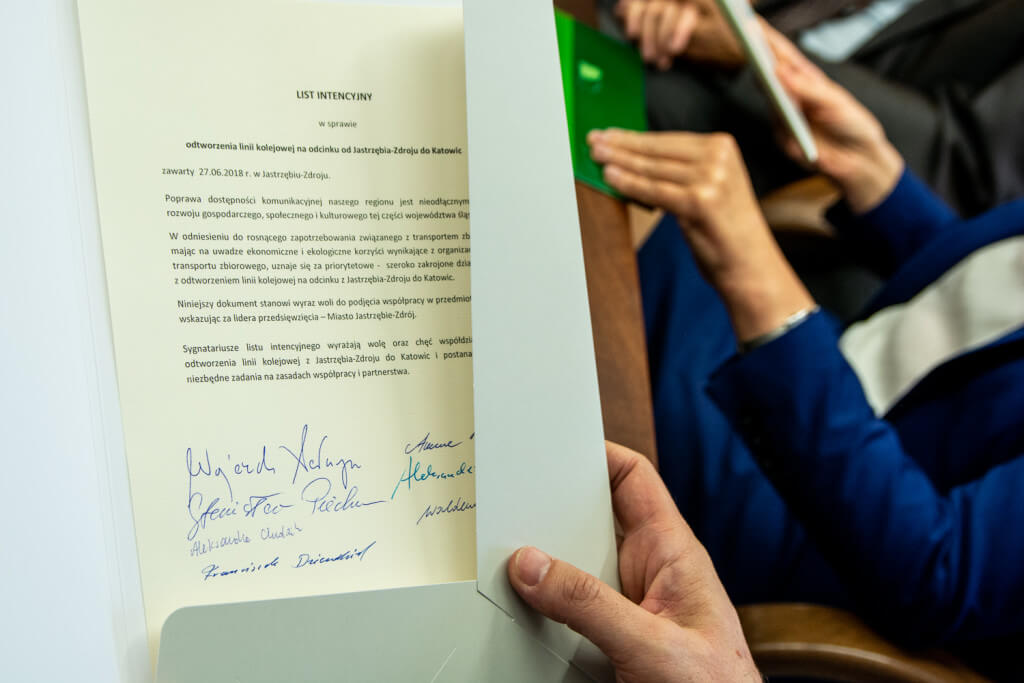 LIST INTENCYJNY
w sprawie
odtworzenia linii kolejowej na odcinku od Jastrzębia-Zdroju do Katowic
zawarty 27.06.2018 r. w Jastrzębiu-Zdroju.
Poprawa dostępności komunikacyjnej naszego regionu jest nieodłącznym
rozwoju gospodarczego, społecznego i kulturowego tej części województwa ślą
W odniesieniu do rosnącego zapotrzebowania związanego z transportem zb
mając na uwadze ekonomiczne i ekologiczne korzyści wynikające z organiza
transportu zbiorowego, uznaje się za priorytetowe - szeroko zakrojone dzia
z odtworzeniem linii kolejowej na odcinku z Jastrzębia-Zdroju do Katowic.
Niniejszy dokument stanowi wyraz woli do podjęcia współpracy w przedmio
wskazując za lidera przedsięwzięcia – Miasto Jastrzębie-Zdrój.
Sygnatariusze listu intencyjnego wyrażają wolę oraz chęć współdzia
odtworzenia linii kolejowej z Jastrzębia-Zdroju do Katowic i postana
niezbędne zadania na zasadach współpracy i partnerstwa.
Wojciech
Anna
Stanisław Piechu
Aleksandra
Aleksandra
Franciszek